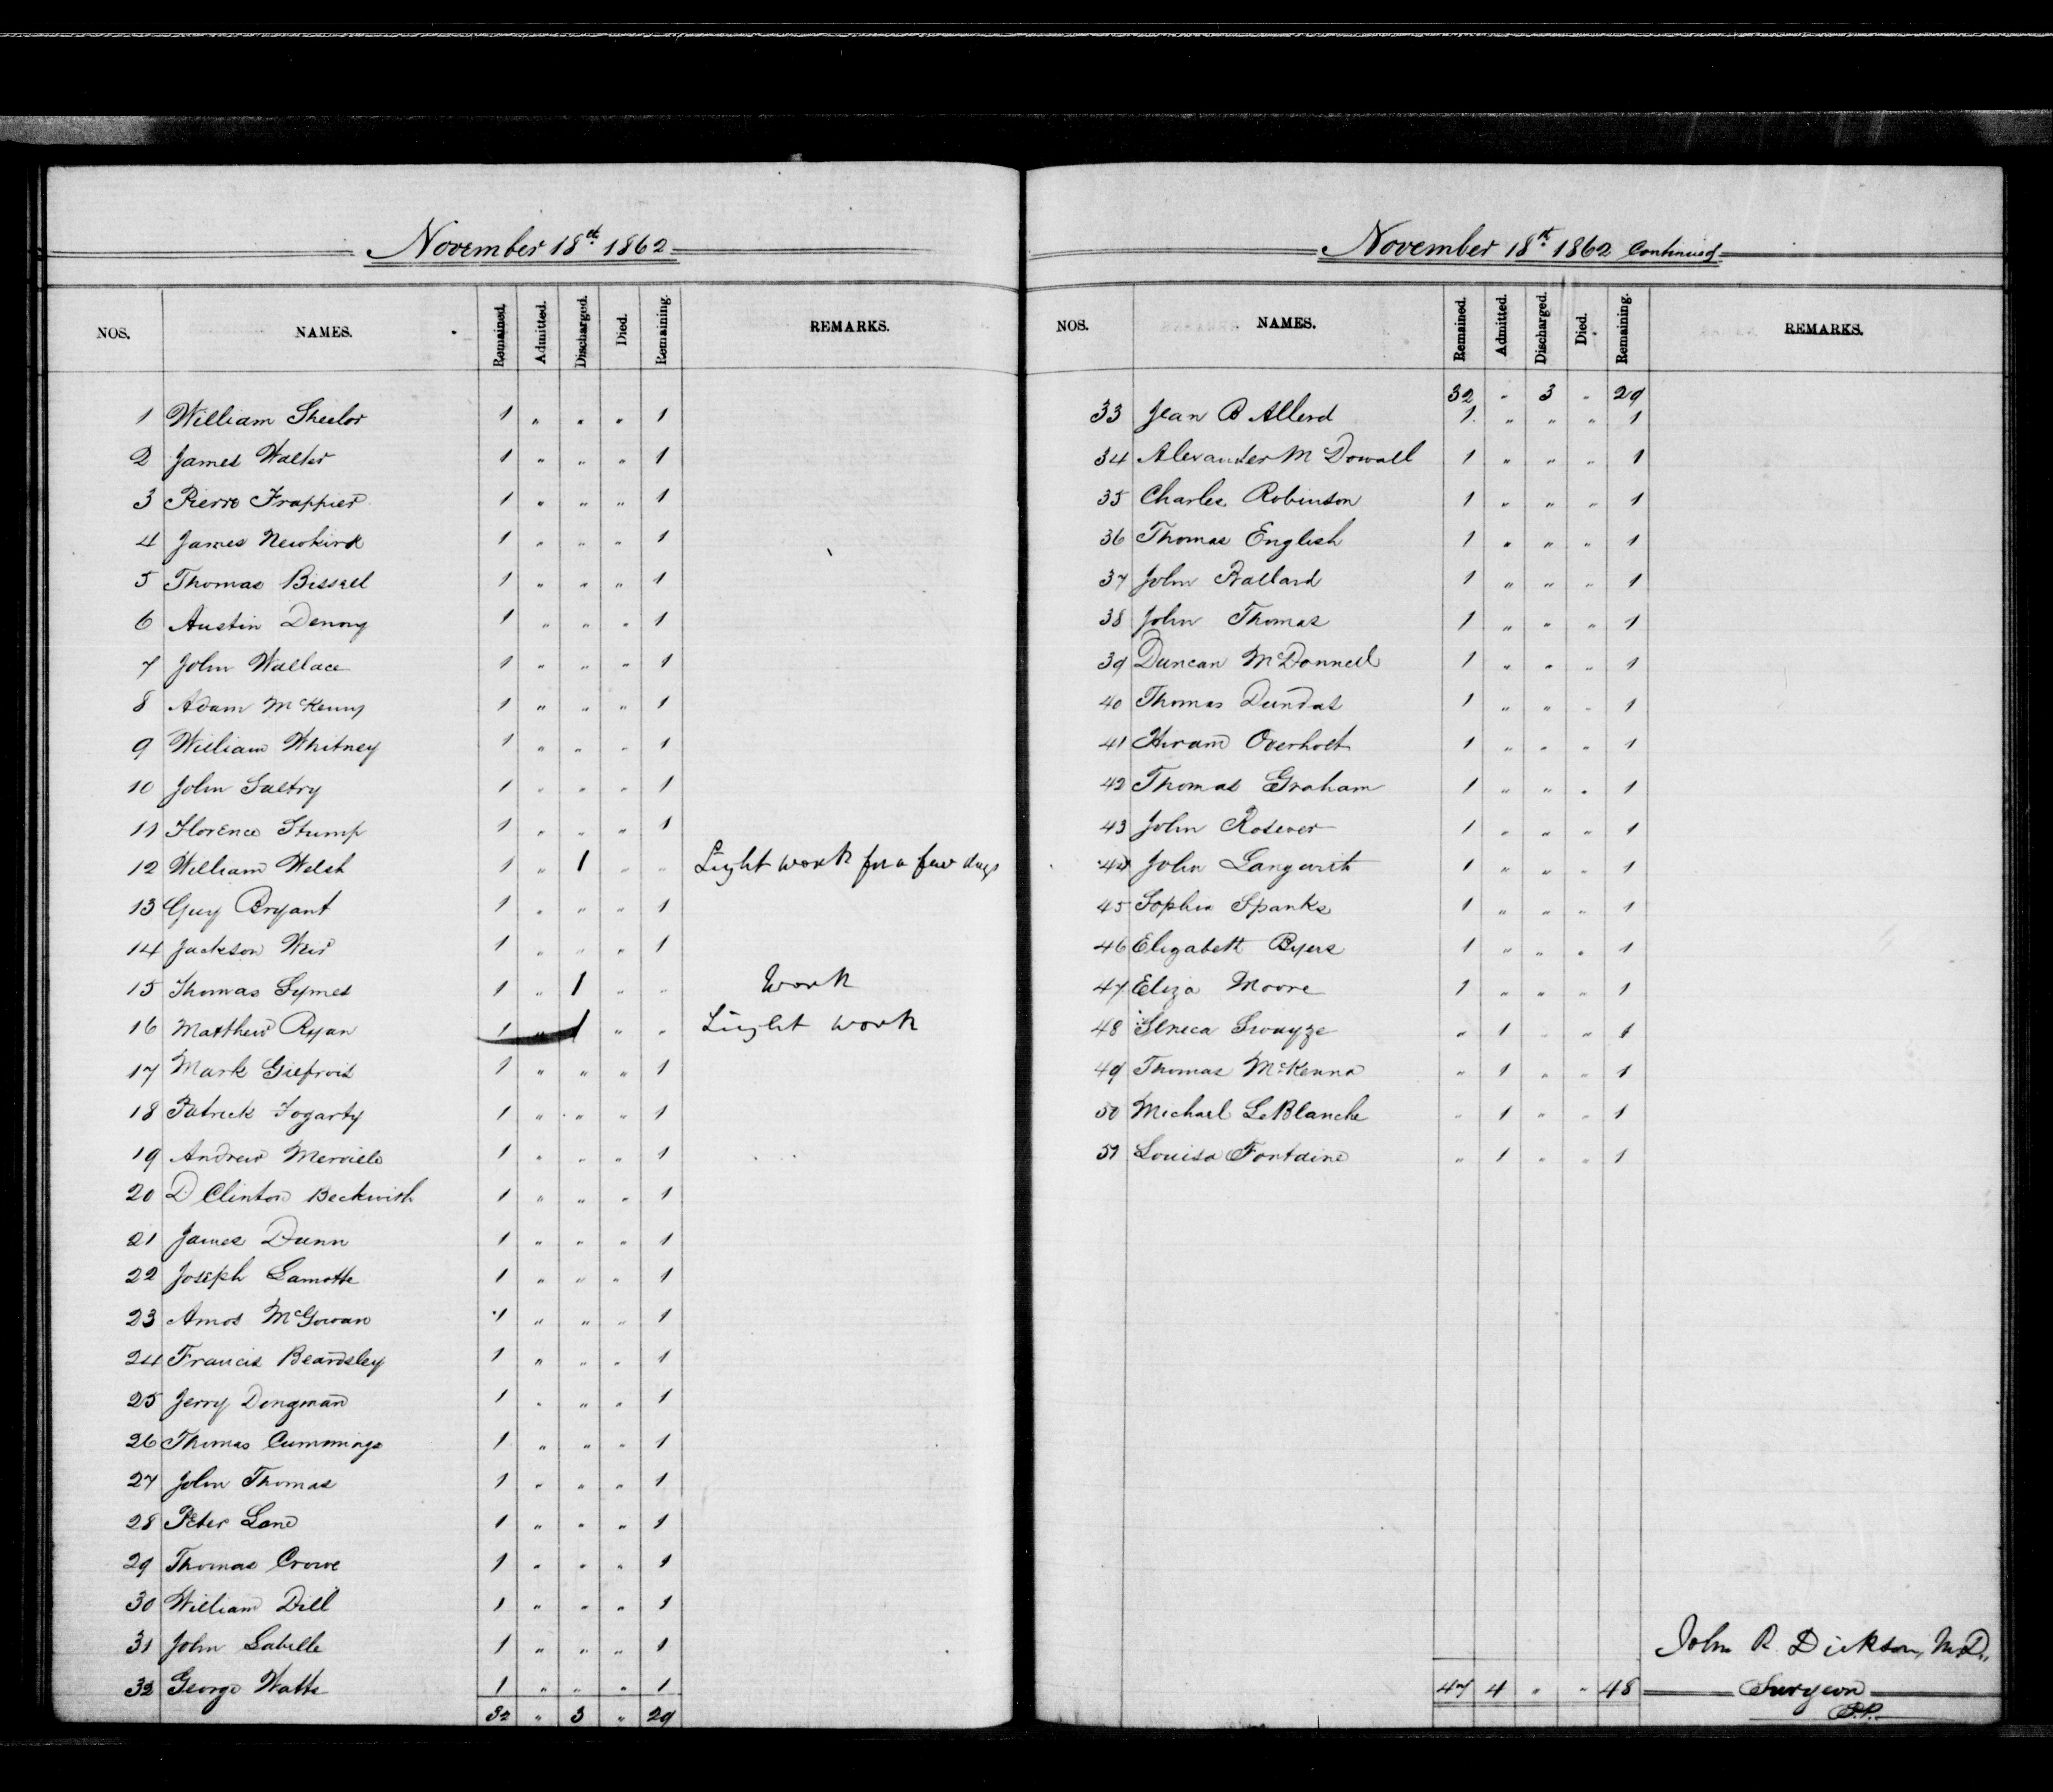 November 18th 1862
NOS. NAMES. Remained. Admitted. Discharged. Died. Remaining. REMARKS.
1 William Sheelor 1 " " " 1
2 James Walter 1 " " " 1
3 Pierre Frappier 1 " " " 1
4 James Newkirk 1 " " " 1
5 Thomas Bissell 1 " " " 1
6 Austin Denony 1 " " " 1
7 John Wallace 1 " " " 1
8 Adam McKenny 1 " " " 1
9 William Whitney 1 " " " 1
10 John Saltry 1 " " " 1
11 Florence Stump 1 " " " 1
12 William Welsh 1 " 1 " " Light work for a few days
13 Guy Bryant 1 " " " 1
14 Jackson Weir 1 " " " 1
15 Thomas Symes 1 " 1 " " Work
16 Matthew Ryan 1 " 1 " " Light work
17 Mark Gilfrois 1 " " " 1
18 Patrick Fogarty 1 " " " 1
19 Andrew Merviele 1 " " " 1
20 D Clinton Beckwith 1 " " " 1
21 James Dunn 1 " " " 1
22 Joseph Lamotte 1 " " " 1
23 Amos McGowan 1 " " " 1
24 Francis Beardsley 1 " " " 1
25 Jerry Dongman 1 " " " 1
26 Thomas Cummings 1 " " " 1
27 John Thomas 1 " " " 1
28 Peter Lane 1 " " " 1
29 Thomas Crowe 1 " " " 1
30 William Dill 1 " " " 1
31 John Labelle 1 " " " 1
32 George Watts 1 " " " 1
32 " 3 " 29
November 18th 1862 Continued
NOS. NAMES. Remained. Admitted. Discharged. Died. Remaining. REMARKS.
32 " 3 " 29
33 Jean B Allerd 1 " " " 1
34 Alexander McDowall 1 " " " 1
35 Charles Robinson 1 " " " 1
36 Thomas English 1 " " " 1
37 John Ballard 1 " " " 1
38 John Thomas 1 " " " 1
39 Duncan McDonnell 1 " " " 1
40 Thomas Dundas 1 " " " 1
41 Hiram Overholt 1 " " " 1
42 Thomas Graham 1 " " " 1
43 John Rosever 1 " " " 1
44 John Langwith 1 " " " 1
45 Sophia Spanks 1 " " " 1
46 Elizabeth Byers 1 " " " 1
47 Eliza Moore 1 " " " 1
48 Seneca Swayze " 1 " " 1
49 Thomas McKenna " 1 " " 1
50 Michael LeBlanche " 1 " " 1
51 Louisa Fontaine " 1 " " 1
John R. Dickson, M.D.,
47 4 " " 48 Surgeon
P.P.